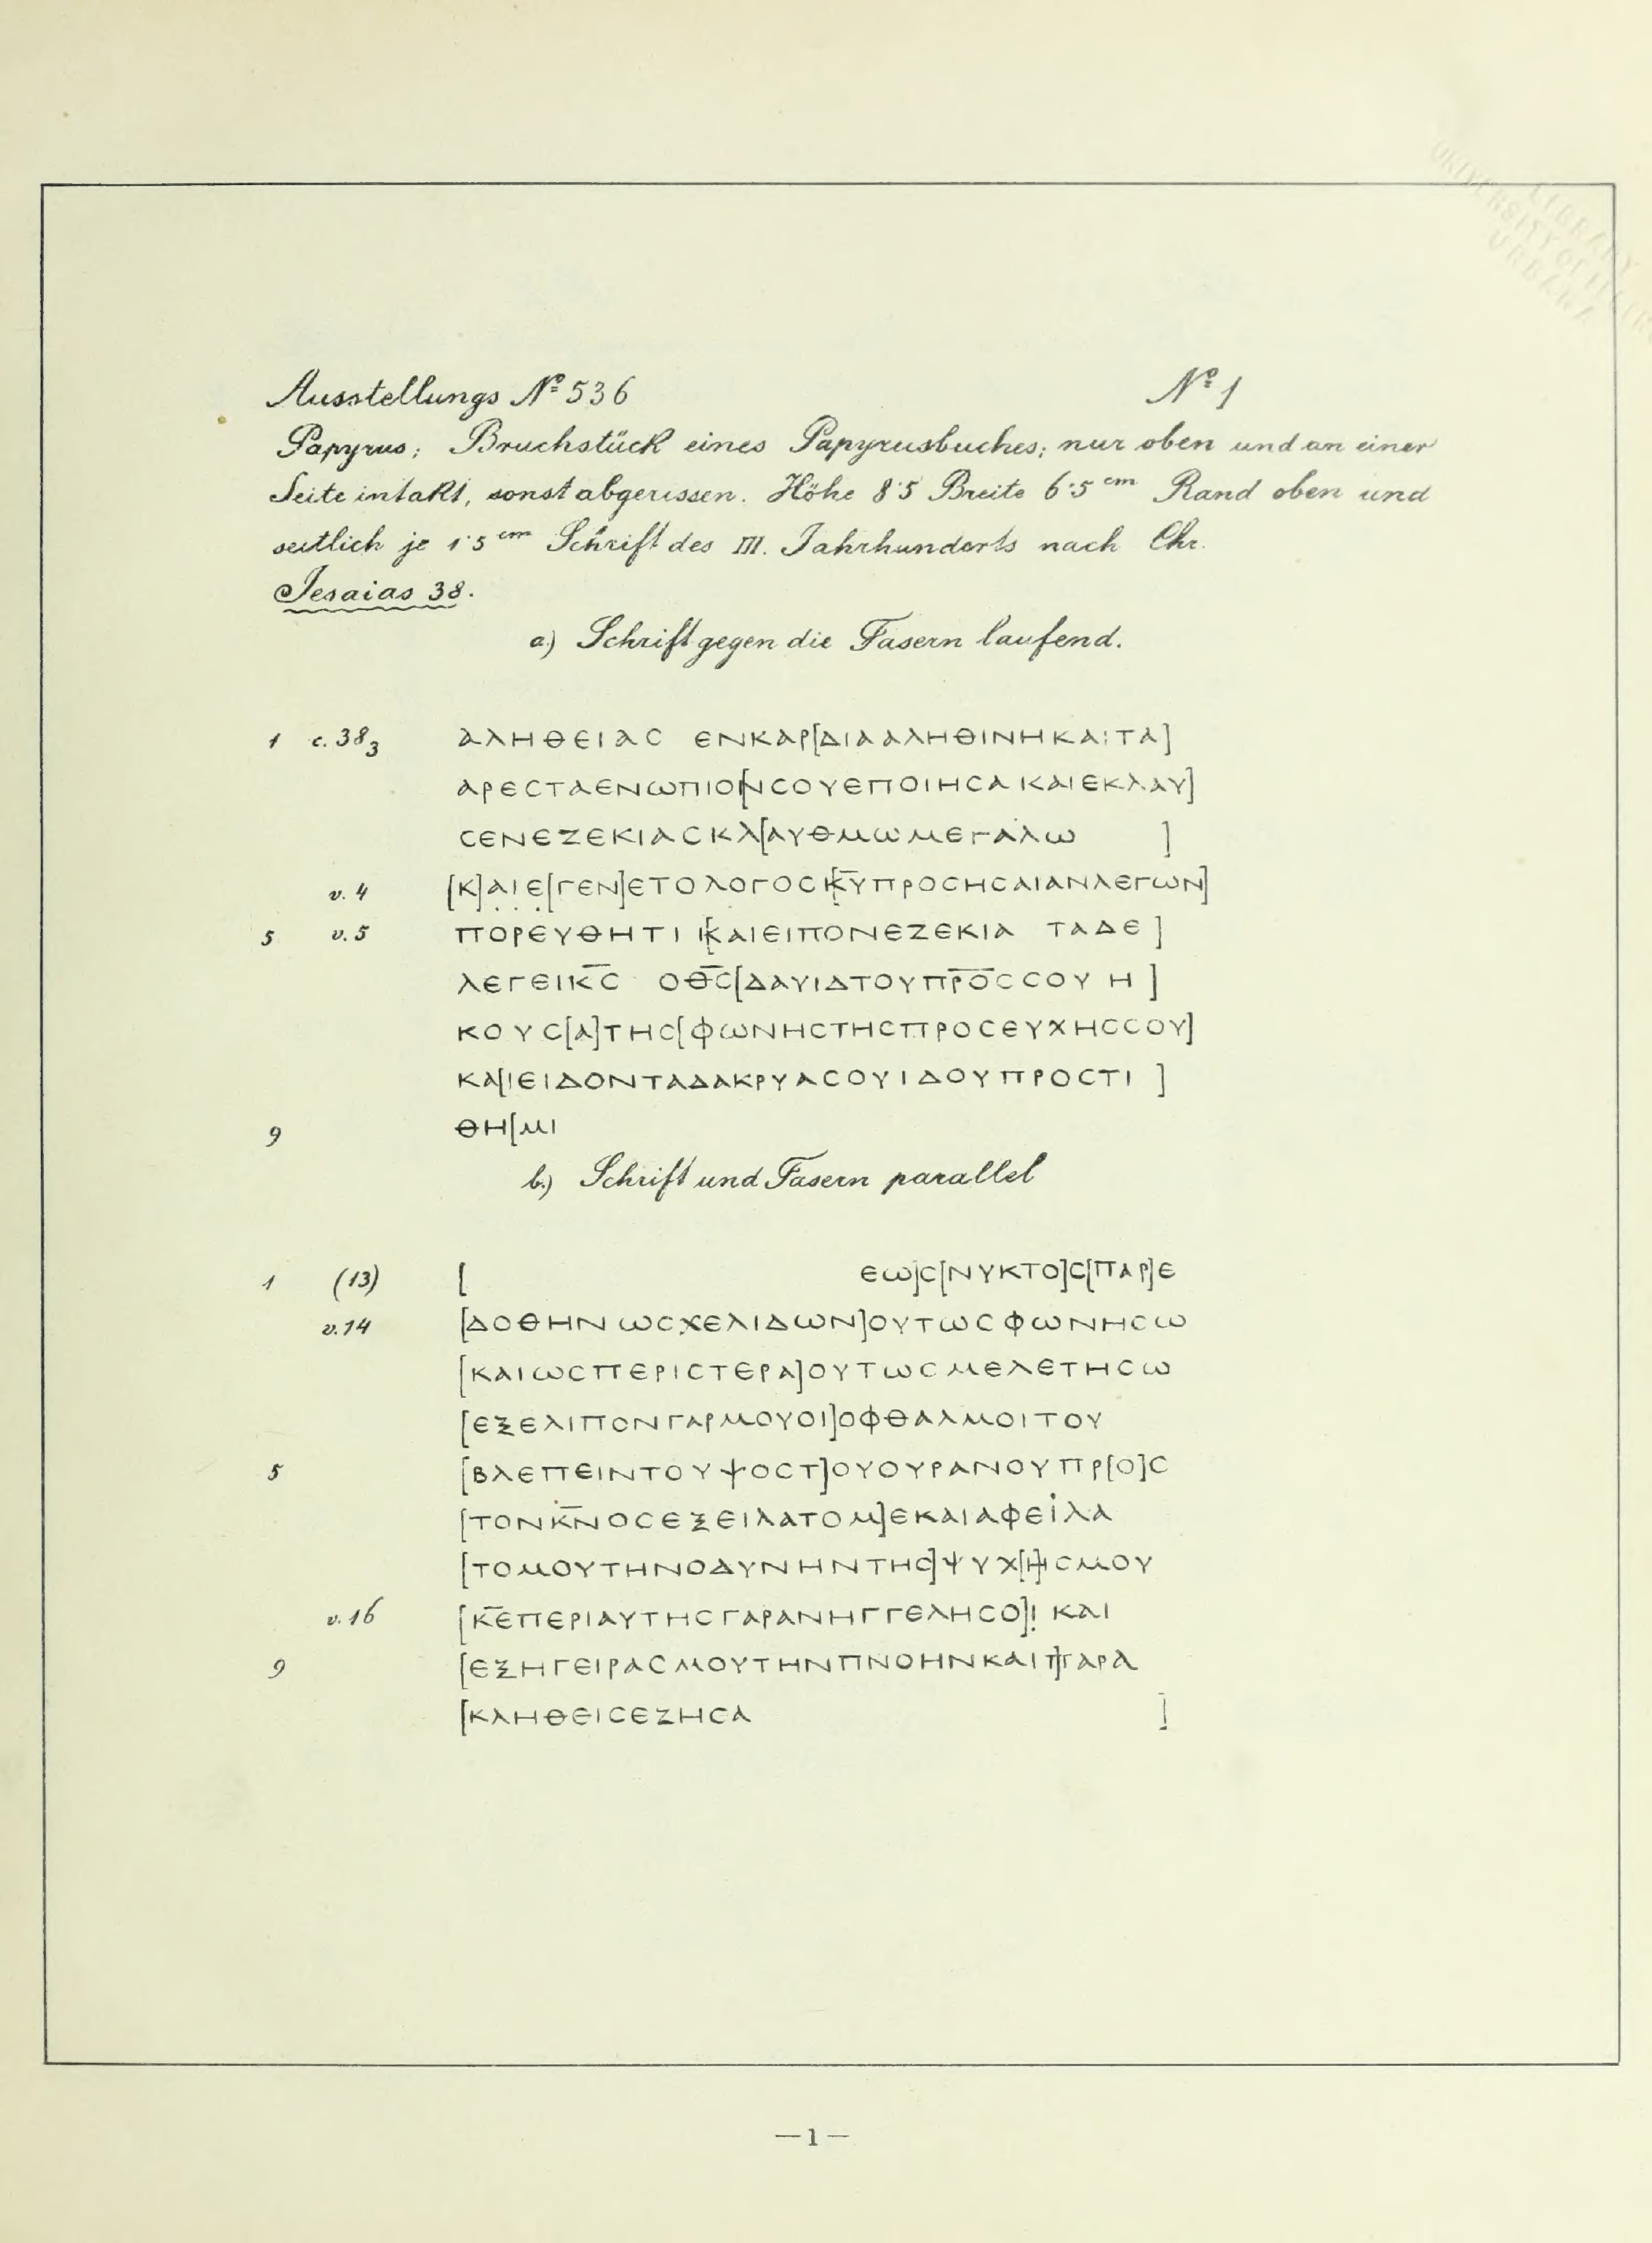 Ausstellungs № 536 № 1
Papyrus; Bruchstück eines Papyrusbuches; nur oben und an einer
Seite intakt, sonst abgerissen. Höhe 8·5 Breite 6·5 cm Rand oben und
seitlich je 1·5 cm Schrift des III. Jahrhunderts nach Chr.
Jesaias 38.
a.) Schrift gegen die Fasern laufend.
1 c. 38 3 ΑΛΗΘΕΙΑϹ ΕΝΚΑΡ[ΔΙΑΑΛΗΘΙΝΗΚΑΙΤΑ]
ΑΡΕϹΤΑΕΝωΠΙΟ[ΝϹΟΥΕΠΟΙΗϹΑΚΑΙΕΚΛΑΥ]
ϹΕΝΕΖΕΚΙΑϹΚΛ[ΑΥΘΜωΜΕΓΑΛω ]
v. 4 [Κ]ΑΙΕ[ΓΕΝ]ΕΤΟΛΟΓΟϹ[Κ̅Υ̅ΠΡΟϹΗϹΑΙΑΝΛΕΓωΝ]
5 v. 5 ΠΟΡΕΥΘΗΤΙ [ΚΑΙΕΙΠΟΝΕΖΕΚΙΑ ΤΑΔΕ ]
ΛΕΓΕΙΚ̅Ϲ̅ ΟΘ̅Ϲ̅[ΔΑΥΙΔΤΟΥΠΡ̅Ο̅Ϲ̅ϹΟΥ Η ]
ΚΟΥϹ[Α]ΤΗϹ[ΦωΝΗϹΤΗϹΠΡΟϹΕΥΧΗϹϹΟΥ]
ΚΑ[ΙΕΙΔΟΝΤΑΔΑΚΡΥΑϹΟΥΙΔΟΥΠΡΟϹΤΙ ]
9 ΘΗ[ΜΙ
b.) Schrift und Fasern parallel
1 (13) [ Εω]Ϲ[ΝΥΚΤΟ]Ϲ[ΠΑΡ]Ε
v. 14 [ΔΟΘΗΝ ωϹΧΕΛΙΔωΝ]ΟΥΤωϹΦωΝΗϹω
[ΚΑΙωϹΠΕΡΙϹΤΕΡΑ]ΟΥΤωϹΜΕΛΕΤΗϹω
[ΕΞΕΛΙΠΟΝΓΑΡΜΟΥΟΙ]ΟΦΘΑΛΜΟΙΤΟΥ
5 [ΒΛΕΠΕΙΝΤΟΥΨΟϹΤ]ΟΥΟΥΡΑΝΟΥΠΡ[Ο]Ϲ
[ΤΟΝΚ̅Ν̅ΟϹΕΞΕΙΛΑΤΟΜ]ΕΚΑΙΑΦΕΙΛΑ
[ΤΟΜΟΥΤΗΝΟΔΥΝΗΝΤΗϹ]ΨΥΧ[Η]ϹΜΟΥ
v. 16 [Κ̅Ε̅ΠΕΡΙΑΥΤΗϹΓΑΡΑΝΗΓΓΕΛΗϹΟ]Ι ΚΑΙ
9 [ΕΞΗΓΕΙΡΑϹΜΟΥΤΗΝΠΝΟΗΝΚΑΙ]ΠΑΡΑ
[ΚΛΗΘΕΙϹΕΖΗϹΑ ]
— 1 —